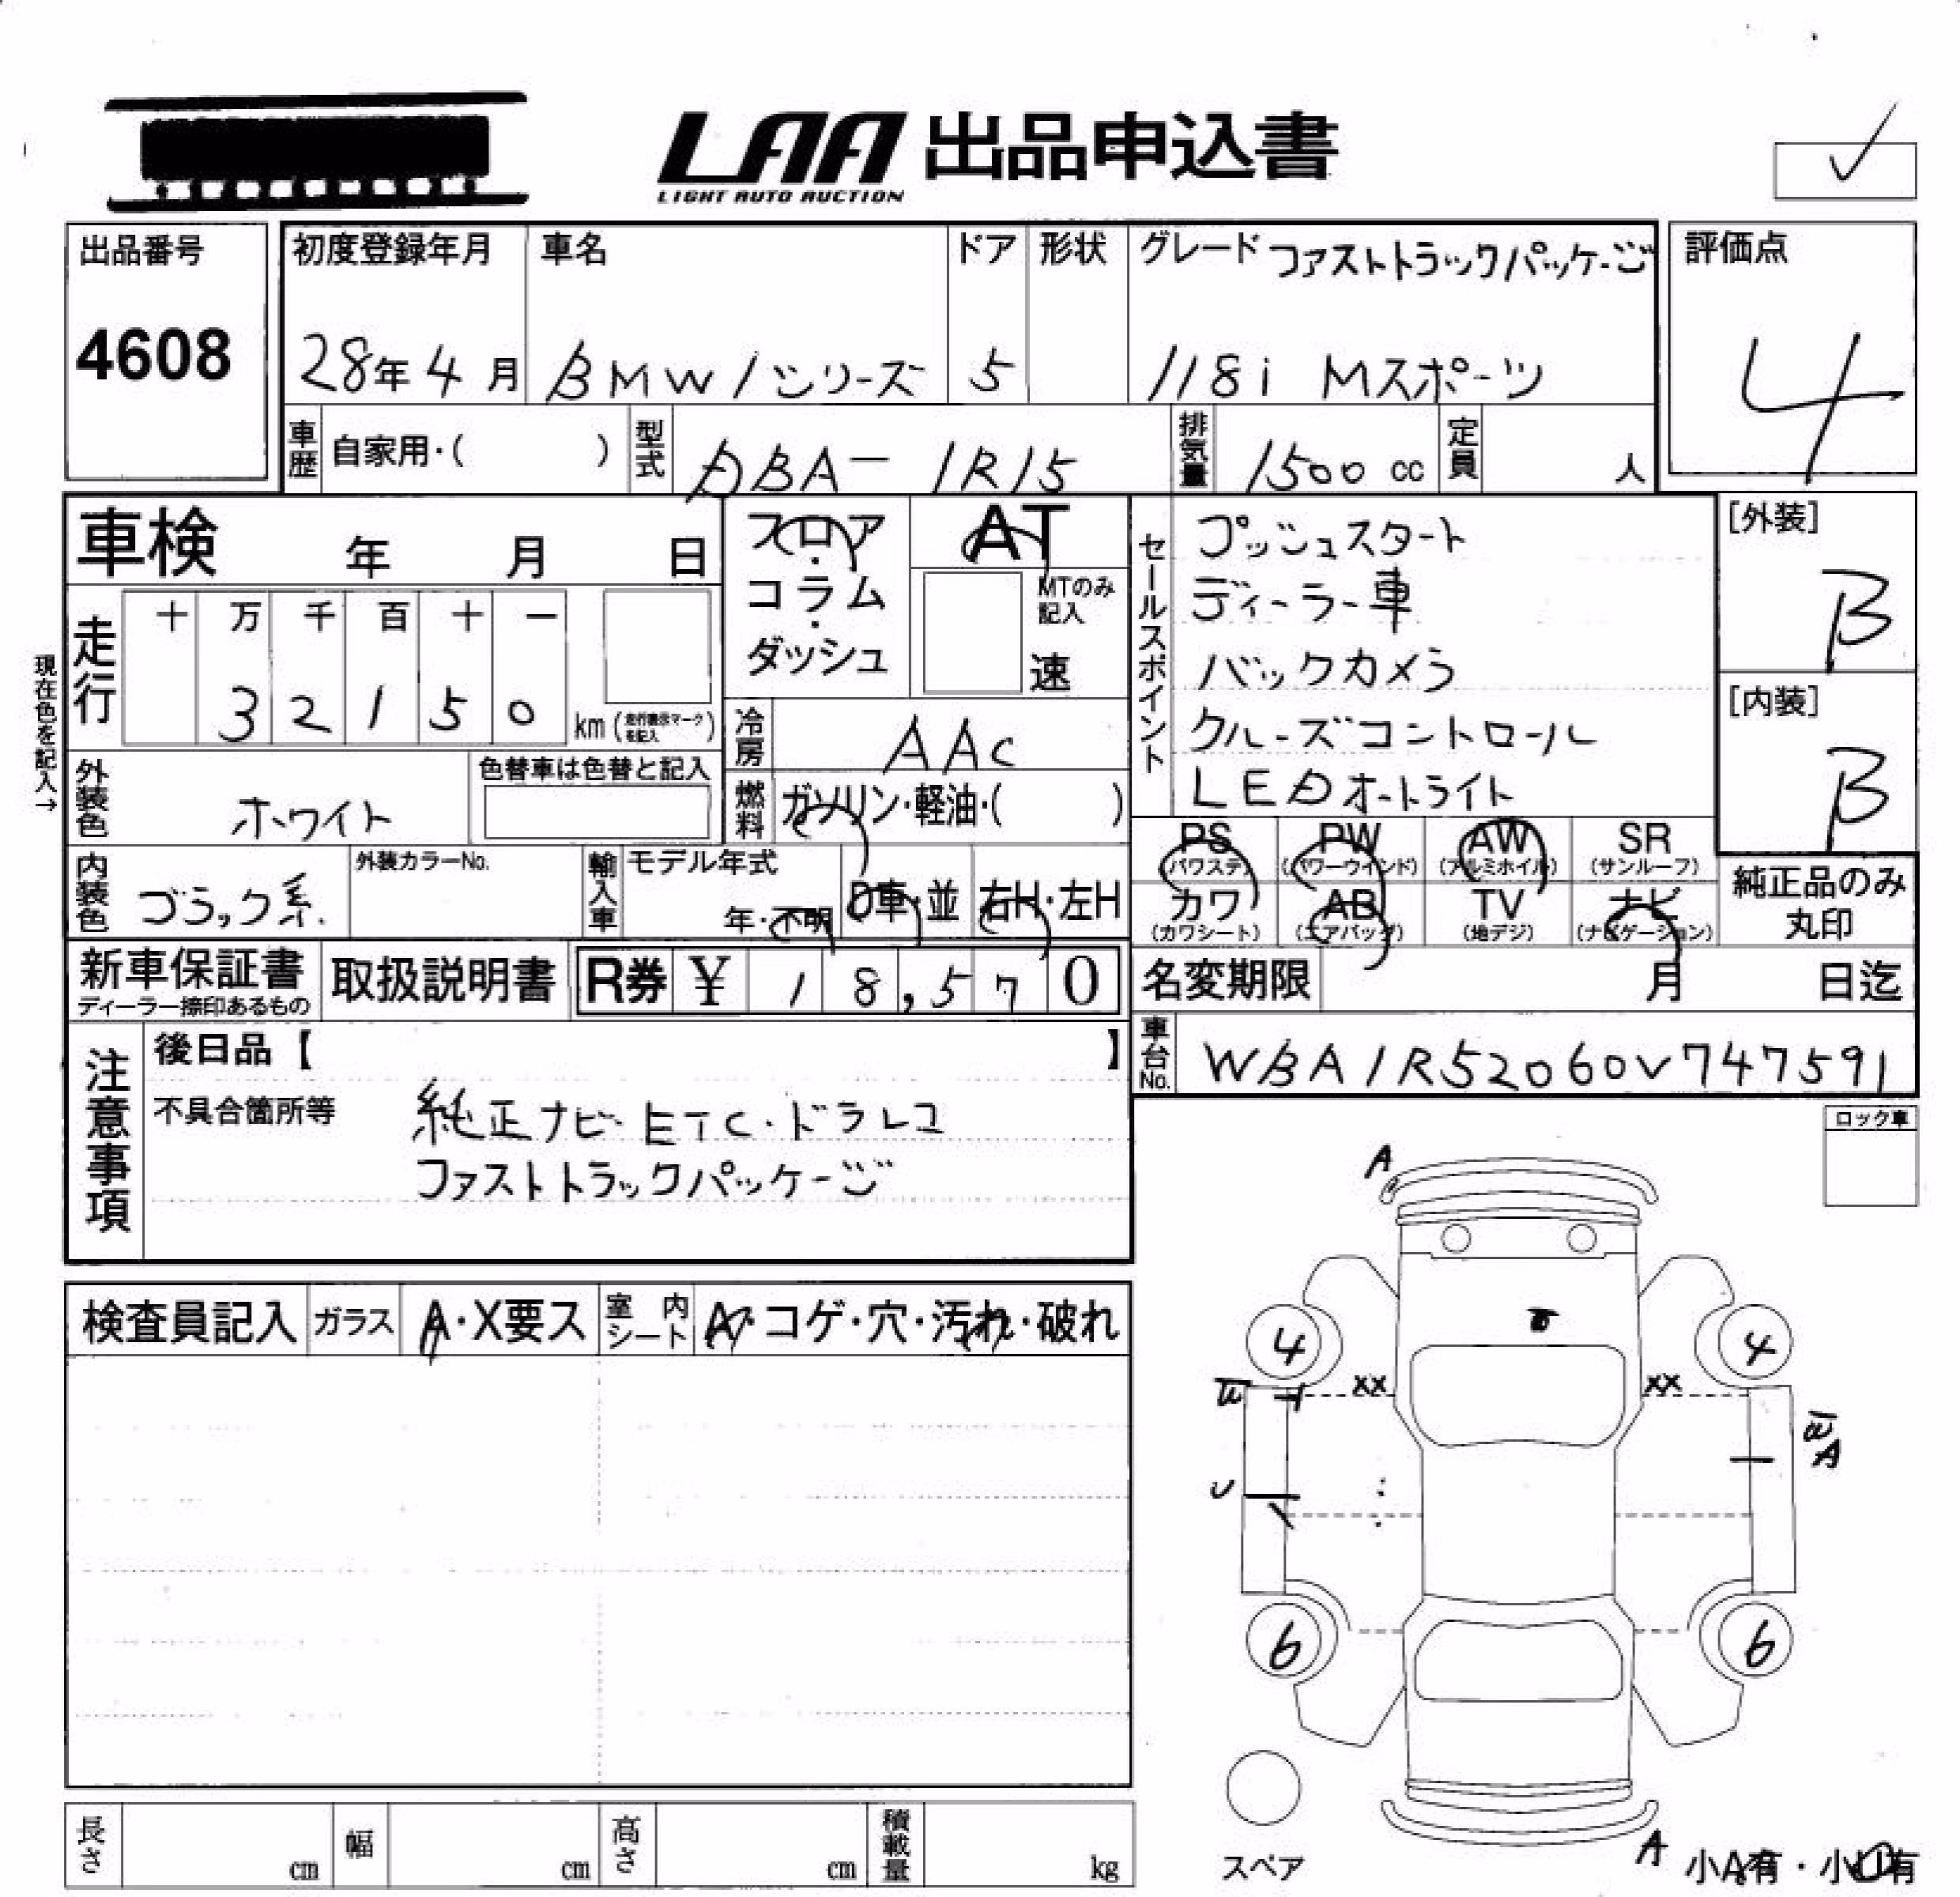 LAA 出品申込書
LIGHT AUTO AUCTION
出品番号
4608
初度登録年月
28年4月
車名
BMW1シリーズ
ドア
5
形状
グレード ファストトラックパッケージ
118i Mスポーツ
評価点
4
車歴 自家用・( )
型式 DBA-1R15
排気量 1500 cc
定員 人
車検 年 月 日
フロア・
コラム・
ダッシュ
AT
MTのみ記入
速
セールスポイント
プッシュスタート
ディーラー車
バックカメラ
クルーズコントロール
LEDオートライト
[外装]
B
[内装]
B
現在色を記入→
走行
十 万 千 百 十 一
3 2 1 5 0
km (走行表示マークを記入)
冷房 AAC
外装色 ホワイト
色替車は色替と記入
燃料 ガソリン・軽油・( )
PS (パワステ)
PW (パワーウインド)
AW (アルミホイル)
SR (サンルーフ)
カワ (カワシート)
AB (エアバッグ)
TV (地デジ)
ナビ (ナビゲーション)
純正品のみ丸印
内装色 ブラック系
外装カラーNo.
輸入車
モデル年式
年・不明
D車・並
右H・左H
新車保証書
ディーラー捺印あるもの
取扱説明書
R券 ¥ 18,570
名変期限 月 日迄
車台No. WBA1R52060V747591
注意事項
後日品【 】
不具合箇所等
純正ナビ・ETC・ドラレコ
ファストトラックパッケージ
ロック車
検査員記入
ガラス A・X要ス
室内シート A・コゲ・穴・汚れ・破れ
A
4 4
XX XX
A
6 6
スペア
A
小A有・小U有
長さ cm
幅 cm
高さ cm
積載量 kg